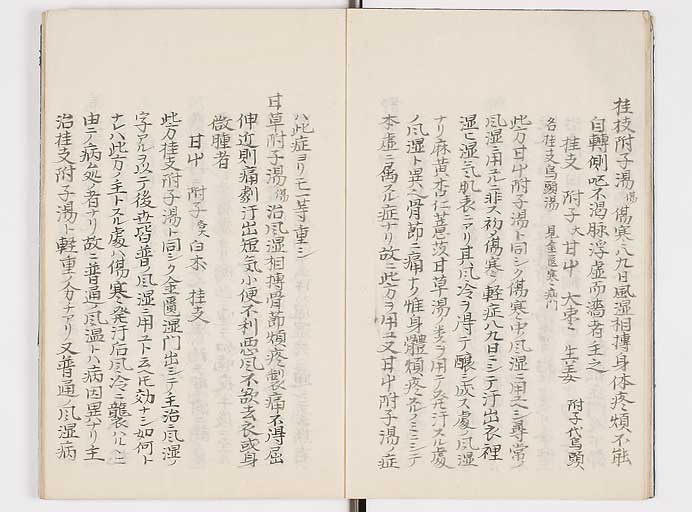 桂枝附子湯傷 傷寒八九日風湿相搏身体疼煩不能
自轉側呕不渇脉浮虚而濇者主之
桂支 附子大 甘艸 大枣 生姜 附子代烏頭
名桂支烏頭湯 見金匱寒疝门
此方甘艸附子湯ト同シク傷寒中風湿ニ用ユ尋常ノ
風湿ニ用ルニ非ス初メ傷寒ノ軽症八九日ニシテ汗出表裡
湿ヒ湿氣肌表ニアリ其風冷ヲ得テ醸シ成ス處ノ風湿
ナリ麻黄杏仁薏苡甘草湯ノ類ヲ用テ発汗スル處
ノ風湿ト異ハ骨節ニ痛ナク惟身體煩疼スルノミニシテ
本虚ニ属スル症ナリ故ニ此方ヲ用ユ又甘艸附子湯ノ症
ハ此症ヨリモ一等重シ
甘草附子湯傷 治風湿相搏骨節煩疼掣痛不得屈
伸近則痛劇汗出短気小便不利悪風不欲去衣或身
微腫者
甘艸 附子炮 白术 桂支
此方桂支附子湯ト同シク金匱湿门出シテ主治ニ風湿ノ
字アルヲ以テ後世皆普ノ風湿ニ用ユト云ヒ效ナシ如何ト
ナレハ此方ノ主トスル處ハ傷寒ニ発汗后風冷ニ襲ハルヽニ
由テ病ム処ノ者ナリ故ニ普通ノ風温トハ病因異ナリ主
治桂支附子湯ト軽重ノ分ナアリ又普通ノ風湿病